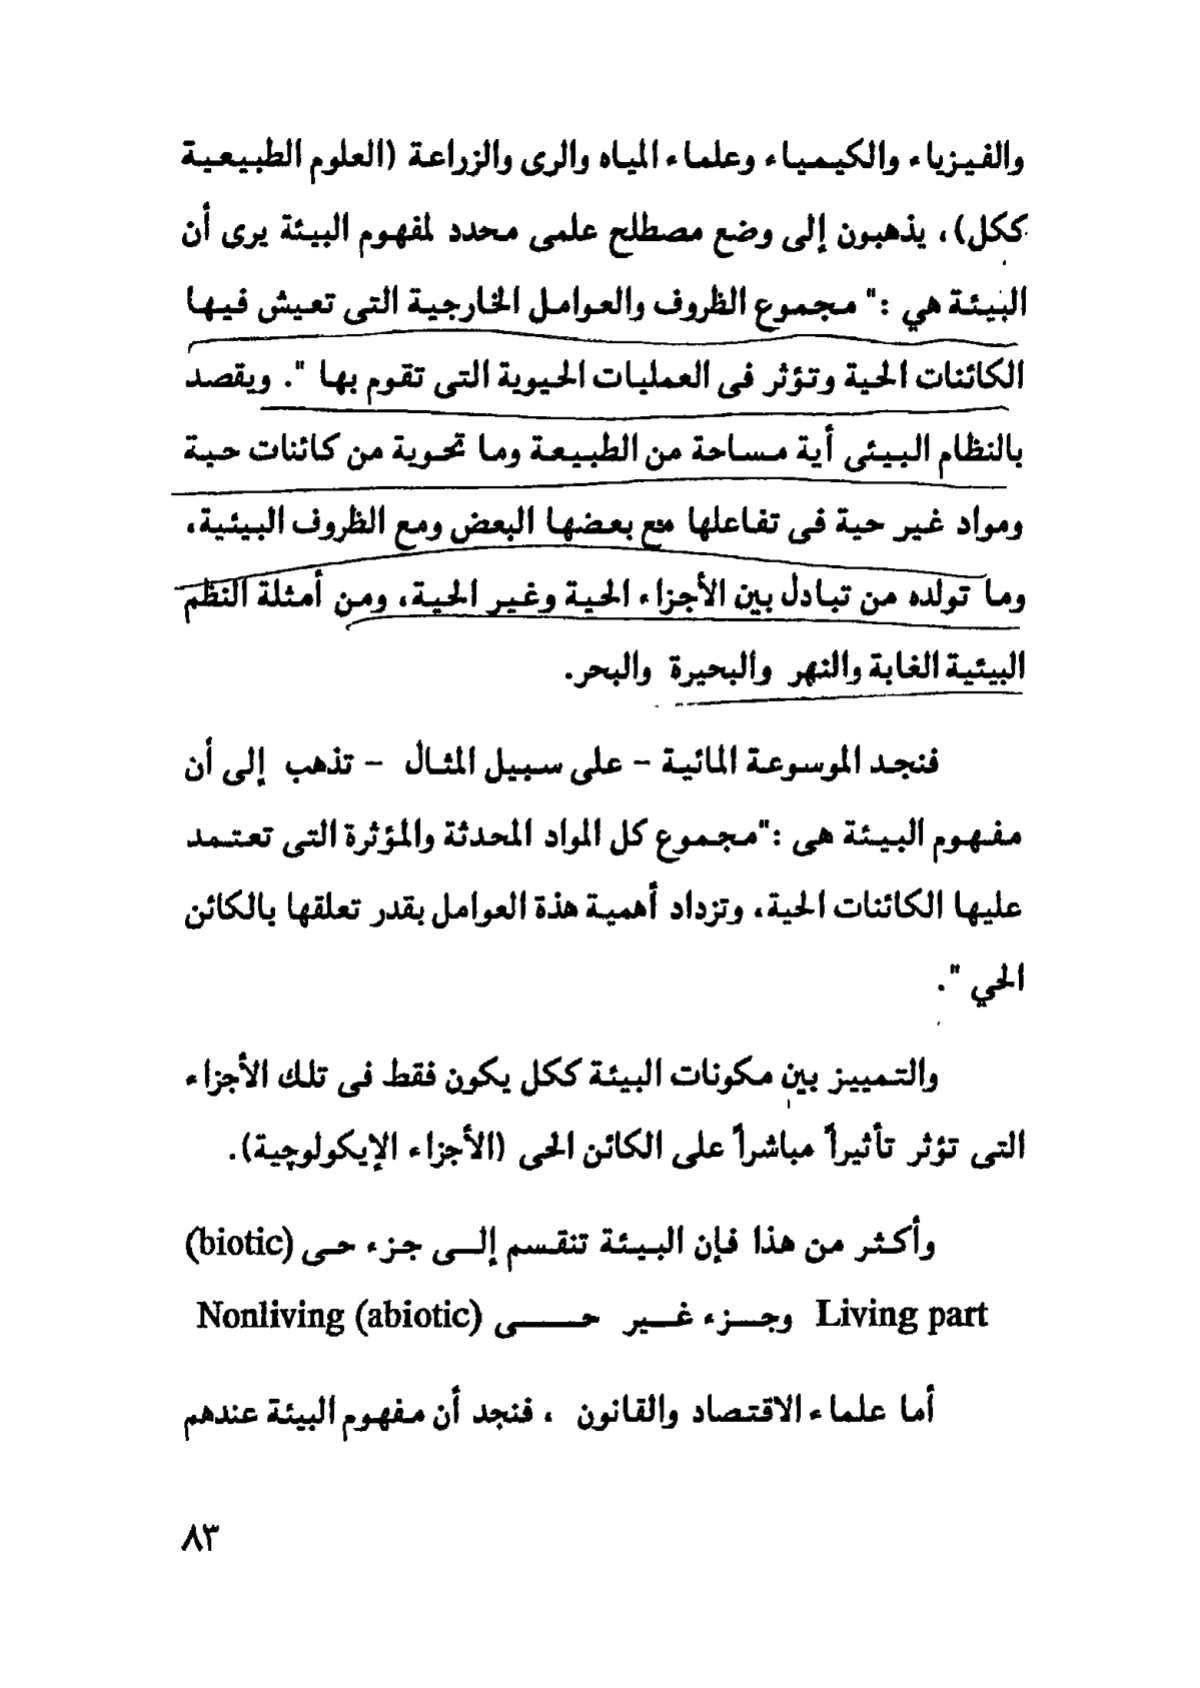 والفيزياء والكيمياء وعلماء المياه والرى والزراعة (العلوم الطبيعية
ككل)، يذهبون إلى وضع مصطلح علمى محدد لمفهوم البيئة يرى أن
البيئة هي :" مجموع الظروف والعوامل الخارجية التى تعيش فيها
الكائنات الحية وتؤثر فى العمليات الحيوية التى تقوم بها ". ويقصد
بالنظام البيئى أية مساحة من الطبيعة وما تحوية من كائنات حية
ومواد غير حية فى تفاعلها مع بعضها البعض ومع الظروف البيئية،
وما تولده من تبادل بين الأجزاء الحية وغير الحية، ومن أمثلة النظم
البيئية الغابة والنهر والبحيرة والبحر.
فنجد الموسوعة المائية – على سبيل المثال – تذهب إلى أن
مفهوم البيئة هى :"مجموع كل المواد المحدثة والمؤثرة التى تعتمد
عليها الكائنات الحية، وتزداد أهمية هذة العوامل بقدر تعلقها بالكائن
الحي ".
والتمييز بين مكونات البيئة ككل يكون فقط فى تلك الأجزاء
التى تؤثر تأثيراً مباشراً على الكائن الحى (الأجزاء الإيكولوچية).
وأكثر من هذا فإن البيئة تنقسم إلى جزء حى (biotic)
Living part وجزء غير حى Nonliving (abiotic)
أما علماء الاقتصاد والقانون ، فنجد أن مفهوم البيئة عندهم
٨٣